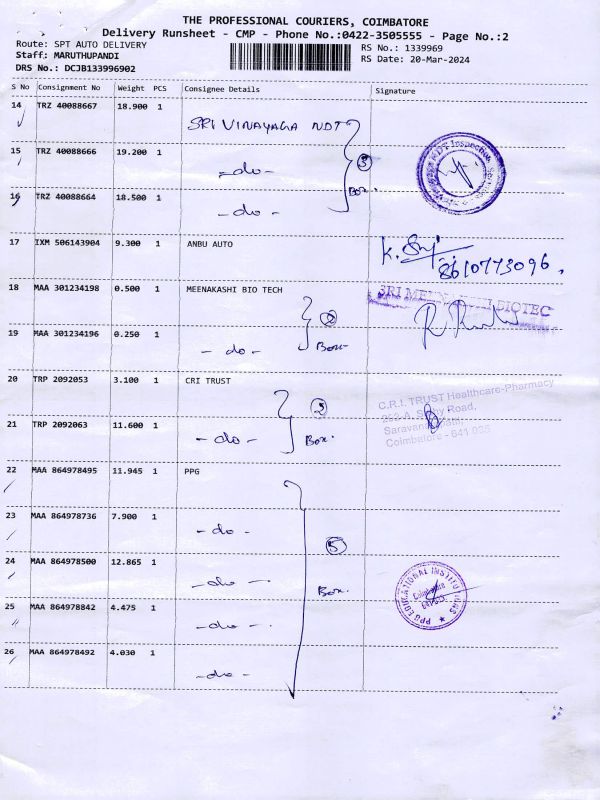 THE PROFESSIONAL COURIERS, COIMBATORE
Delivery Runsheet - CMP - Phone No.:0422-3505555 - Page No.:2
Route: SPT AUTO DELIVERY
Staff: MARUTHUPANDI
DRS No.: DCJB133996902
RS No.: 1339969
RS Date: 20-Mar-2024
S No Consignment No Weight PCS Consignee Details Signature
14 TRZ 40088667 18.900 1
SRI VINAYAGA NDT
15 TRZ 40088666 19.200 1
-do-
3
Box.
16 TRZ 40088664 18.500 1
-do-
17 IXM 506143904 9.300 1 ANBU AUTO
8610773096.
18 MAA 301234198 0.500 1 MEENAKASHI BIO TECH
2
19 MAA 301234196 0.250 1
-do- Box-
20 TRP 2092053 3.100 1 CRI TRUST
2
C.R.I. TRUST Healthcare-Pharmacy
Road,
Coimbatore - 641 035
21 TRP 2092063 11.600 1
-do- Box.
22 MAA 864978495 11.945 1 PPG
23 MAA 864978736 7.900 1
-do-
5
24 MAA 864978500 12.865 1
-do-
Box.
PPG EDUCATIONAL INSTITUTIONS
25 MAA 864978842 4.475 1
-do-
26 MAA 864978492 4.030 1
-do-